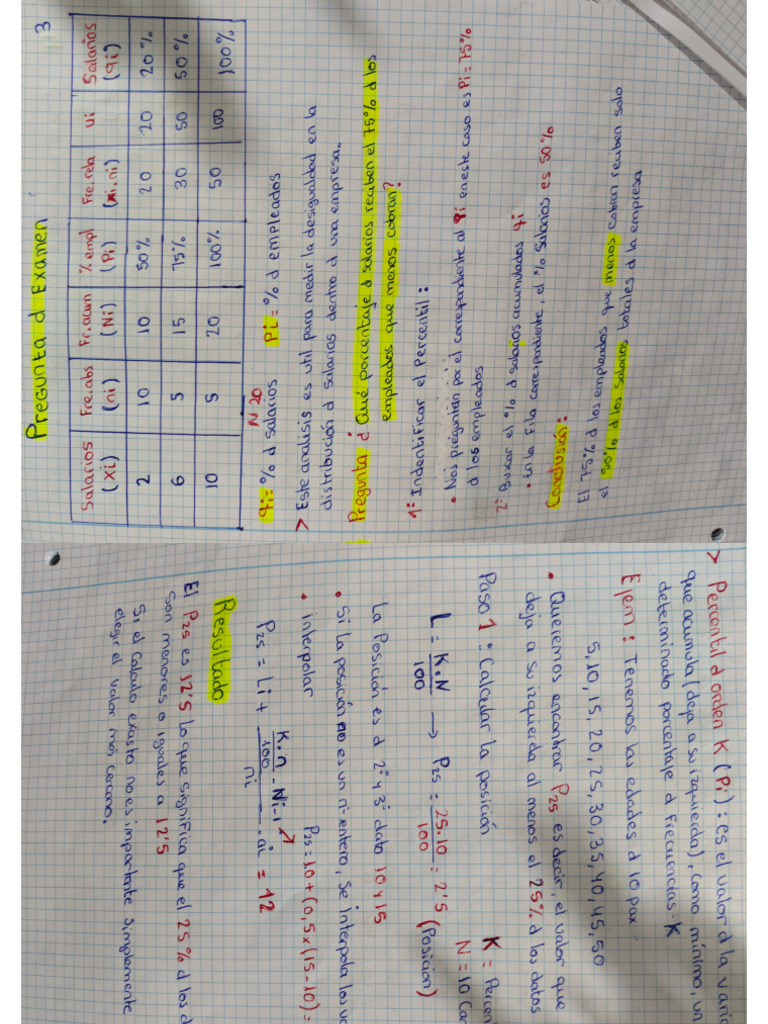 Pregunta d Examen
3
Salarios (xi) | Fre.abs (ni) | Fr.acum (Ni) | % empl (Pi) | Fre.rela (xi.ni) | ui | Salarios (qi)
2 | 10 | 10 | 50% | 20 | 20 | 20%
6 | 5 | 15 | 75% | 30 | 50 | 50%
10 | 5 | 20 | 100% | 50 | 100 | 100%
N 20
qi = % d salarios Pi = % d empleados
> Este analisis es util para medir la desigualdad en la
distribución d salarios dentro d una empresa.
Pregunta d Qué porcentaje d salarios reciben el 75% d los
empleados que menos cobran?
1: Indentificar el Percentil:
• Nos preguntan por el correspondiente al qi en este caso es Pi = 75%
d los empleados
2: Buxar el % d salarios acumulados qi
• En la fila correspondiente, el % salarios es 50%
Conclusión:
El 75% d los empleados que menos cobran reciben solo
el 50% d los salarios totales d la empresa
> Percentil d orden K (Pi): es el valor d la varia
que acumula (deja a su izquierda), como mínimo, un
determinado porcentaje d frecuencias K
Ejem: Tenemos las edades d 10 pax
5, 10, 15, 20, 25, 30, 35, 40, 45, 50
• Queremos encontrar P25 es decir, el valor que
deja a su izquierda al menos el 25% d los datos
Paso 1: Calcular la posición
K = Percen
N = 10 (Can
L = K.N / 100 → P25 = 25.10 / 100 = 2'5 (Posicion)
La Posición es d 2º y 3º dato 10 y 15
• Si la posición no es un nº entero, se interpola los va
• interpolar
P25 = 10 + (0,5 x (15 - 10) =
P25 = Li + K.n / 100 - Ni-1 / ni . ai = 12
Resultado
El P25 es 12'5 lo que significa que el 25% d los d
son menores o iguales a 12'5
Si el calculo exasto no es importante simplemente
elegir el valor más cercano.